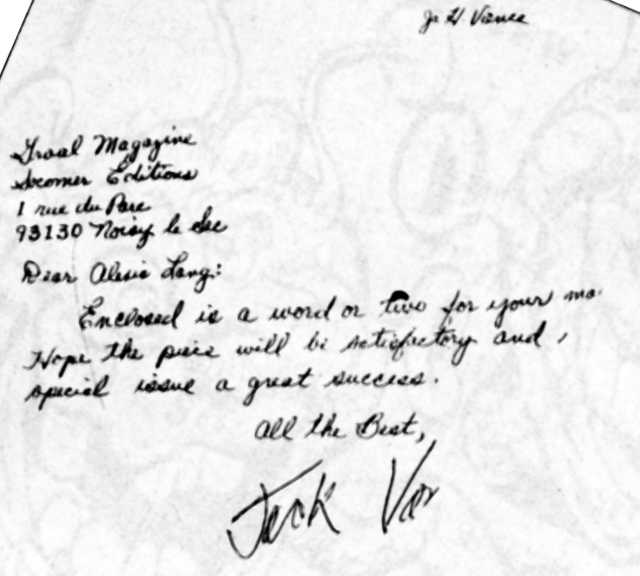 Jo H. Vance
Graal Magazine
Socomer Editions
1 rue du Parc
93130 Noisy le Sec
Dear Alexis Lang:
Enclosed is a word or two for your ma
Hope the piece will be satisfactory and
special issue a great success.
All the Best,
Jack Van